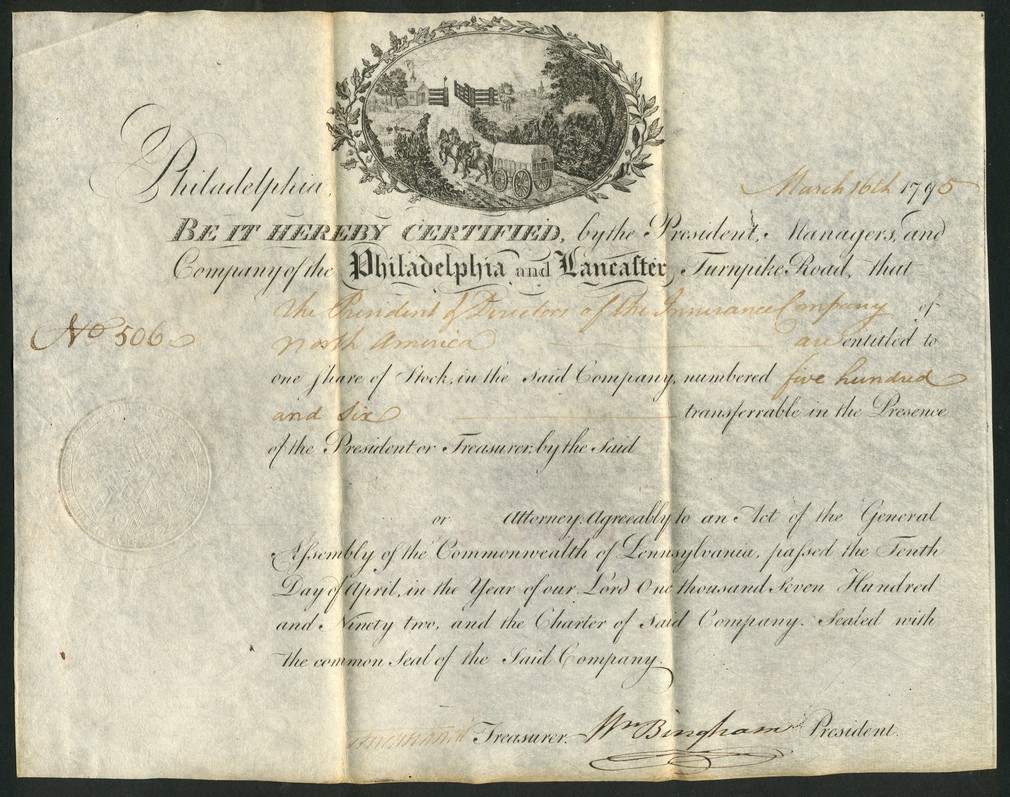 Philadelphia, March 16th 1795
BE IT HEREBY CERTIFIED, by the President, Managers, and
Company of the Philadelphia and Lancaſter Turnpike Road, that
the President & Directors of the Insurance Company of
No 506 North America are entitled to
one ſhare of Stock, in the ſaid Company, numbered five hundred
and six transferrable in the Presence
of the President or Treasurer by the Said
or Attorney. Agreeably to an Act of the General
Aſsembly of the Commonwealth of Pennsylvania, paſsed the Tenth
Day of April, in the Year of our Lord One thousand Seven Hundred
and Ninety two, and the Charter of ſaid Company. Sealed with
the common Seal of the Said Company.
Treasurer. Wm Bingham President.